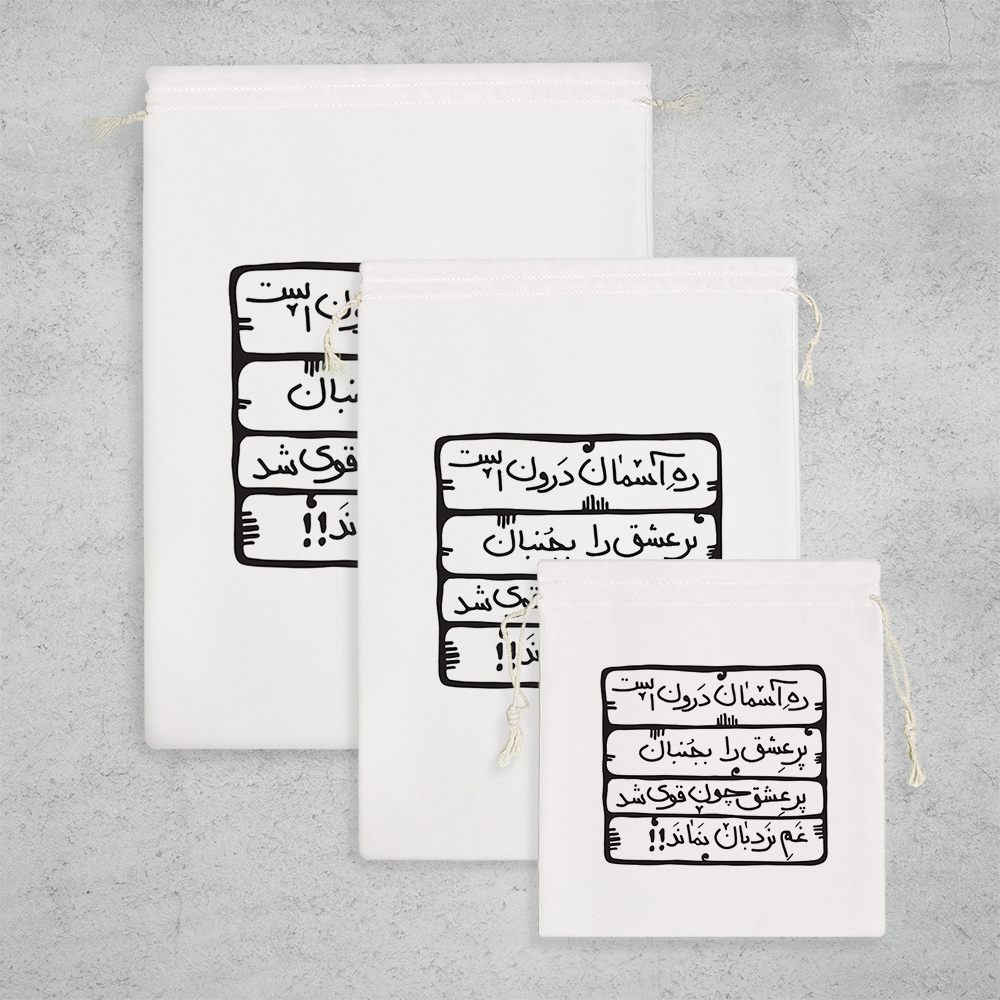 ون است
نبان
قوی شد
ند!!
ره آسمان درون است
پر عشق را بجنبان
قوی شد
ند!!
ره آسمان درون است
پر عشق را بجنبان
پر عشق چون قوی شد
غم نردبان نماند!!